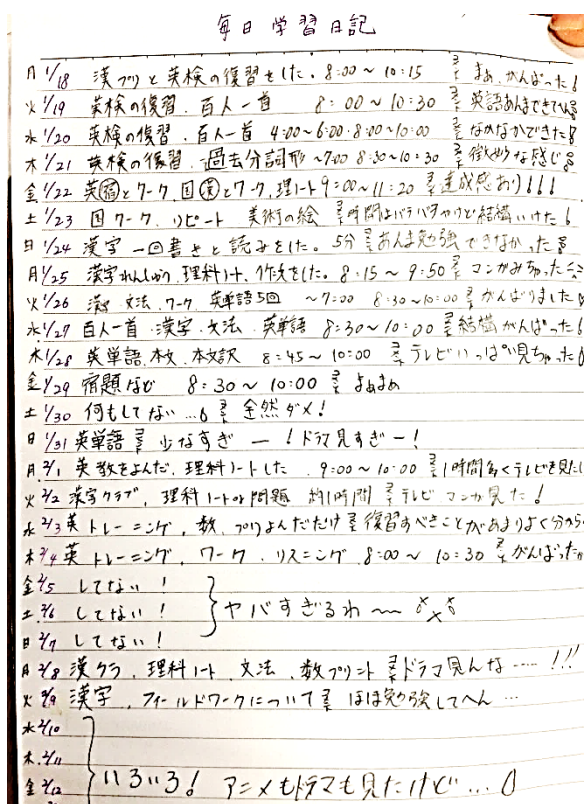 毎日学習日記
月 1/18 漢プリと英検の復習をした。8:00～10:15 まぁ、がんばった!
火 1/19 英検の復習、百人一首 8:00～10:30 英語あんまできてない
水 1/20 英検の復習、百人一首 4:00～6:00・8:00～10:00 なかなかできた
木 1/21 英検の復習、過去分詞形 ～7:00 8:30～10:30 微妙な感じ
金 1/22 英宿とワーク、国漢とワーク、理ノート 9:00～11:20 達成感あり!!!
土 1/23 国ワーク、リピート 美術の絵 時間はバラバラやけど結構いけた!
日 1/24 漢字一回書きと読みをした。5分 あんま勉強できなかった
月 1/25 漢字れんしゅう、理科ノート、作文をした。8:15～9:50 マンガみちゃった
火 1/26 文法、ワーク、英単語5回 ～7:00 8:30～10:00 がんばりました
水 1/27 百人一首・漢字・文法・英単語 8:30～10:00 結構がんばった!
木 1/28 英単語、本文、本文訳 8:45～10:00 テレビいっぱい見ちゃった
金 1/29 宿題など 8:30～10:00 まぁまぁ
土 1/30 何もしてない… 全然ダメ!
日 1/31 英単語 少なすぎー!ドラマ見すぎー!
月 2/1 英教をよんだ、理科ノートした、9:00～10:00 1時間多くテレビを見た
火 2/2 漢字クラブ、理科ノートの問題 約1時間 テレビ マンガ見た!
水 2/3 英トレーニング、数、プリよんだだけ 復習すべきことがあまりよく分から
木 2/4 英トレーニング、ワーク、リスニング、8:00～10:30 がんばった
金 2/5 してない!
土 2/6 してない! ヤバすぎるわ～～
日 2/7 してない!
月 2/8 漢クラ、理科ノート、文法、数プリント ドラマ見んな……!!!
火 2/9 漢字、フィールドワークについて ほぼ勉強してへん…
水 2/10
木 2/11
金 2/12 いろいろ! アニメもドラマも見たけど…